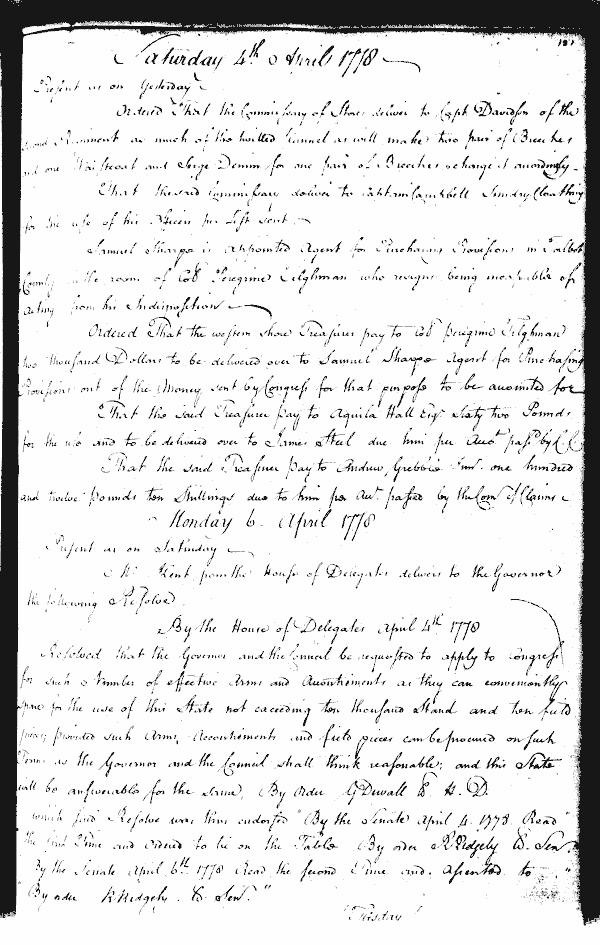 Saturday 4th April 1778
Present as on Yesterday
Ordered That the Commissary of Stores deliver to Capt Davidson of the
second Regiment as much of the twilled flannel as will make two pair of Breeches
and one Waistcoat and Serge Denim for one pair of Breeches & charge it accordingly
That the said Commissary deliver to Captain Campbell Sundry Cloathing
for the use of his Officers per List sent
Samuel Sharpe is appointed Agent for Purchasing Provisions in Talbot
County in the room of Col Peregrine Tilghman who resigns being incapable of
acting from his Indisposition
Ordered That the western shore Treasurer pay to Col Peregrine Tilghman
two thousand Dollars to be delivered over to Samuel Sharpe Agent for Purchasing
Provisions out of the Money sent by Congress for that purpose to be accounted for
That the said Treasurer Pay to Aquila Hall Esqr Sixty two Pounds
for the use and to be delivered over to James Steel due him per Acct passd by C C
That the said Treasurer pay to Andrew Junr one hundred
and twelve pounds ten Shillings due to him per Acct passed by the Com of Claims
Monday 6 April 1778
Present as on Saturday
Mr Kent from the House of Delegates delivers to the Governor
the following Resolve
By the House of Delegates April 4th 1778
Resolved that the Governor and the Council be requested to apply to Congress
for such a Number of effective Arms and Accoutrements as they can conveniently
spare for the use of this State not exceeding ten thousand Stand and ten field
pieces, provided such Arms, Accoutrements and field pieces can be procured on such
Terms as the Governor and the Council shall think reasonable; and this State
will be answerable for the same, By order G Duvall Cl. H. D.
which said Resolve was thus endorsed "By the Senate April 4. 1778 Read
the first Time and ordered to lie on the Table By order R Ridgely Cl. Sen.
By the Senate April 6th 1778 Read the second Time and assented to "
"By order R Ridgely Cl Sen."
Tuesday